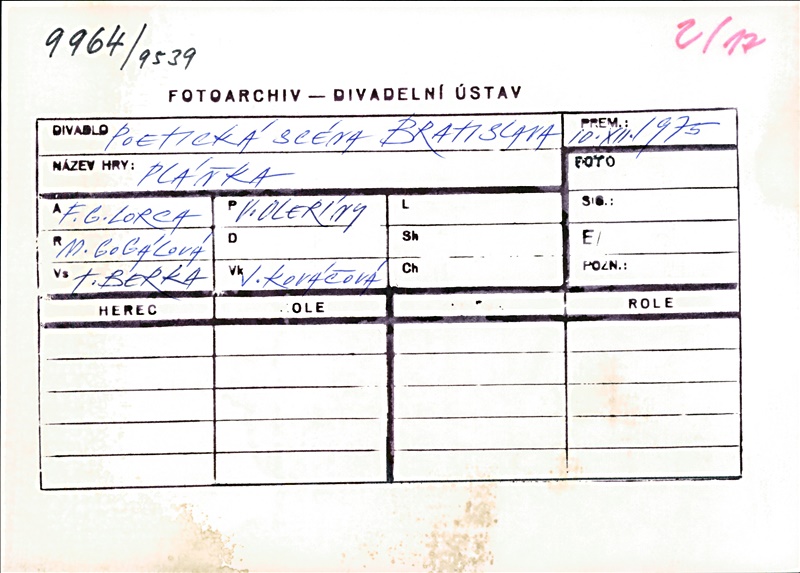 9964/9539
2/17
FOTOARCHIV — DIVADELNÍ ÚSTAV
DIVADLO POETICKÁ SCÉNA BRATISLAVA
PREM.: 10.XII.1975
NÁZEV HRY: PLÁŇKA
FOTO
A F.G. LORCA
P V. OLERÍNY
L
SIG.:
R M. GOGÁLOVÁ
D
Sh
E/
Vs T. BERKA
Vk V. KOVÁČOVÁ
Ch
POZN.:
HEREC OLE ROLE